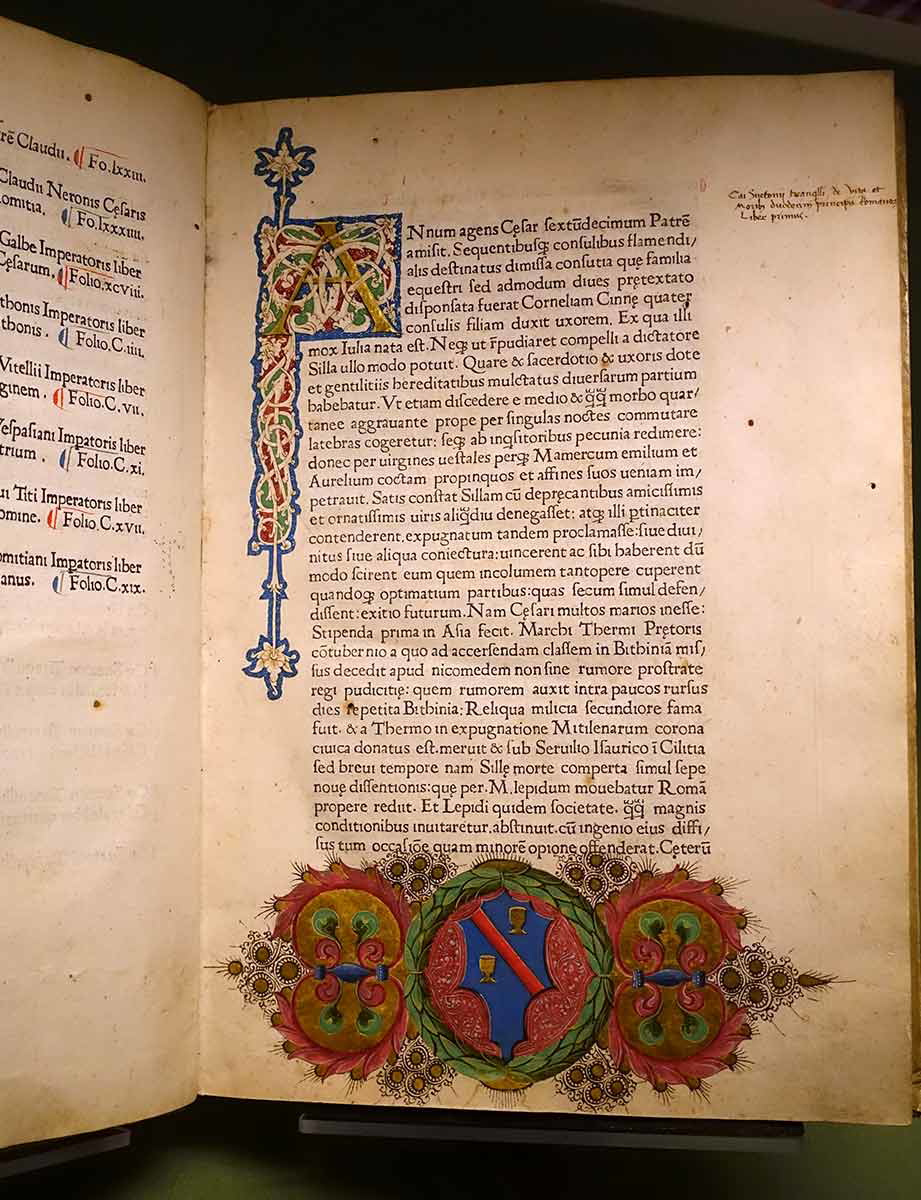 rē Claudii. Fo.lxxiii.
Claudii Neronis Cęsaris
omitia. Fo.lxxxiiii.
Galbe Imperatoris liber
Cęsarum. Folio.xcviii.
thonis Imperatoris liber
thonis. Folio.C.iiii.
Vitellii Imperatoris liber
ginem. Folio.C.vii.
Vespasiani Impatoris liber
trium. Folio.C.xi.
ui Titi Imperatoris liber
omine. Folio.C.xvii.
omitiani Impatoris liber
anus. Folio.C.xix.
Liber primus.
ANnum agens Cęsar sextūdecimum Patrē
amisit. Sequentibusq; consulibus flamendi/
alis destinatus dimissa consutia quę familia
equestri sed admodum diues prętextato
disponsata fuerat Corneliam Cinnę quater
consulis filiam duxit uxorem. Ex qua illi
mox Iulia nata est. Neq; ut r̄pudiaret compelli a dictatore
Silla ullo modo potuit. Quare & sacerdotio & uxoris dote
et gentilitiis hereditatibus mulctatus diuersarum partium
habebatur. Vt etiam discedere e medio & q̄q̄ morbo quar/
tanee aggrauante prope per singulas noctes commutare
latebras cogeretur: seq; ab inq̄sitoribus pecunia redimere:
donec per uirgines uestales perq; Mamercum emilium et
Aurelium coctam propinquos et affines suos ueniam im/
petrauit. Satis constat Sillam cū deprecantibus amicissimis
et ornatissimis uiris aliq̄diu denegasset: atq; illi ptinaciter
contenderent. expugnatum tandem proclamasse: siue diui/
nitus siue aliqua coniectura: uincerent ac sibi haberent dū
modo scirent eum quem incolumem tantopere cuperent
quandoq; optimatium partibus: quas secum simul defen/
dissent: exitio futurum. Nam Cęsari multos marios inesse:
Stipenda prima in Asia fecit. Marchi Thermi Pretoris
cōtubernio a quo ad accersendam classem in Bithinia mis/
sus decedit apud nicomedem non sine rumore prostrate
regi pudicitię: quem rumorem auxit intra paucos rursus
dies repetita Bithinia: Reliqua milicia secundiore fama
fuit. & a Thermo in expugnatione Mitilenarum corona
ciuica donatus est. meruit & sub Seruilio Isaurico ī Cilitia
sed breui tempore nam Sillę morte comperta simul sepe
nouę dissentionis: quę per. M. lepidum mouebatur Romā
propere rediit. Et Lepidi quidem societate. q̄q̄ magnis
conditionibus inuitaretur. abstinuit. cū ingenio eius diffi/
sus tum occasiōe quam minorē opione offenderat. Cęterū